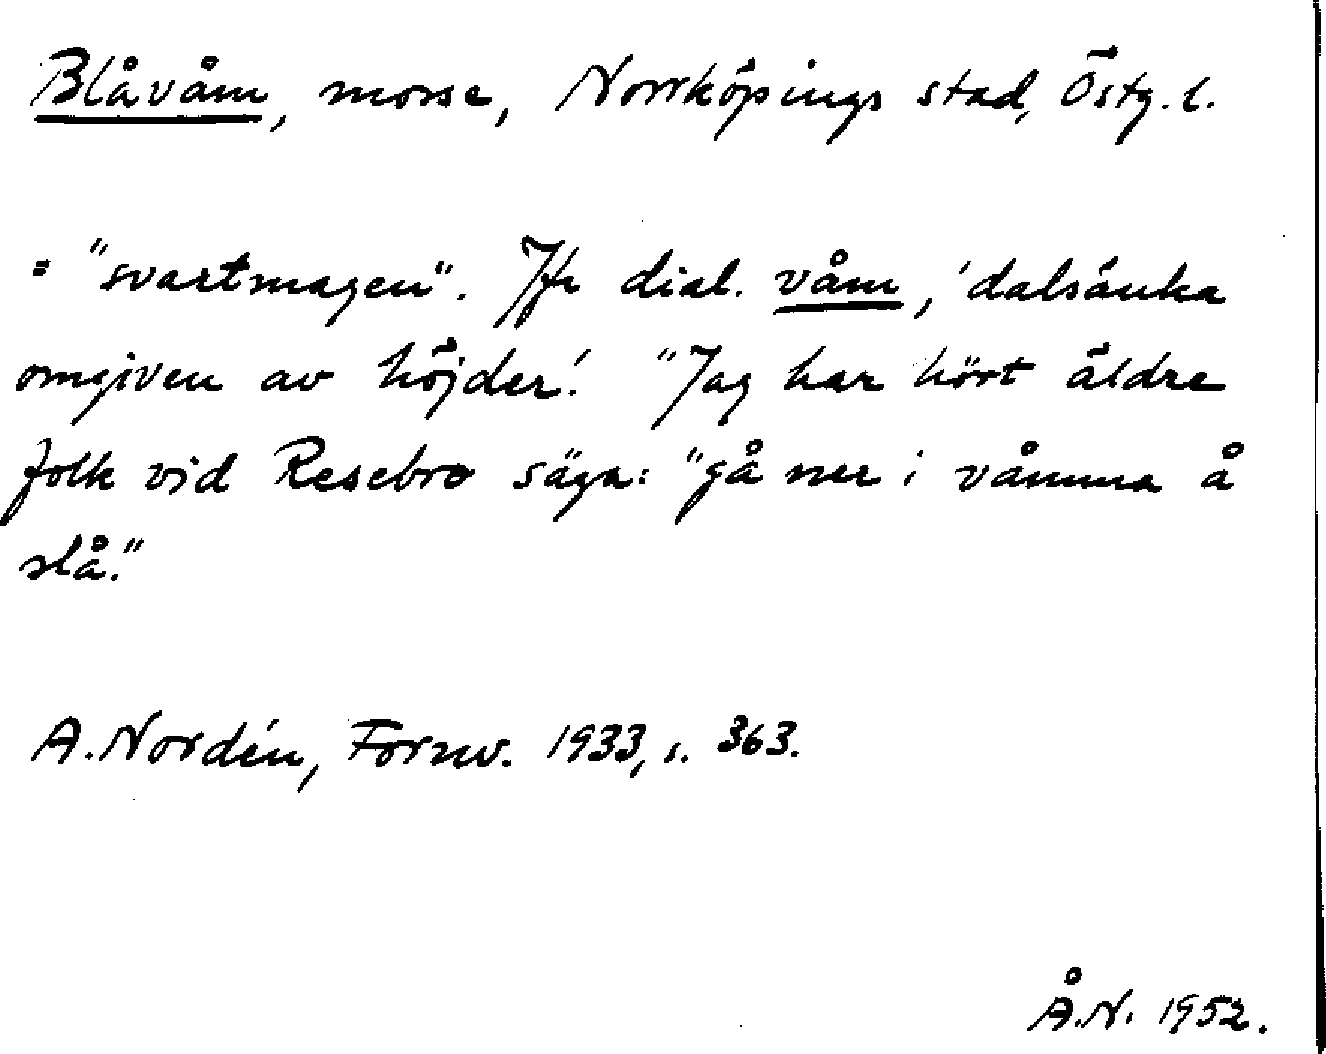 Blåvåm, mosse, Norrköpings stad, Östg. l.
= "svartmagen". Jfr dial. våm, 'dalsänka
omgiven av höjder'. "Jag har hört äldre
folk vid Resebro säga: "gå ner i våmma å
slå."
A. Nordén, Fornv. 1933, s. 363.
Å.N. 1952.